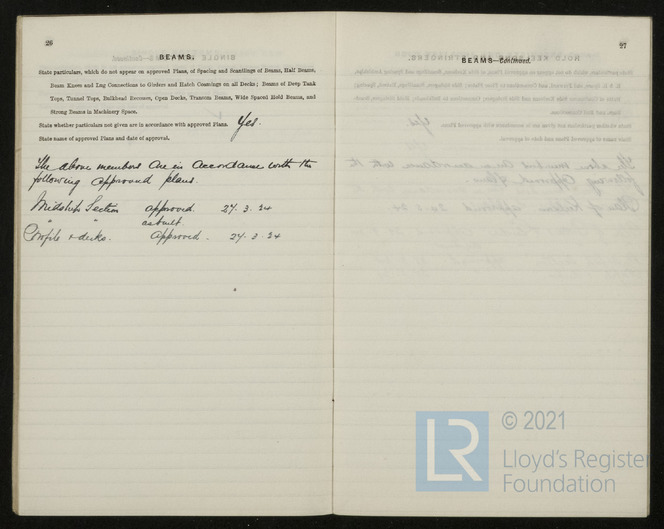 26
BEAMS.
State particulars, which do not appear on approved Plans, of Spacing and Scantlings of Beams, Half Beams,
Beam Knees and Lug Connections to Girders and Hatch Coamings on all Decks; Beams of Deep Tank
Tops, Tunnel Tops, Bulkhead Recesses, Open Decks, Transom Beams, Wide Spaced Hold Beams, and
Strong Beams in Machinery Space.
State whether particulars not given are in accordance with approved Plans. Yes.
State name of approved Plans and date of approval.
The above members are in accordance with the
following approved plans.
Midship Section approved 27.3.24
" " as built.
Profile & decks. Approved. 27.3.24
27
BEAMS—Continued.
LR
© 2021
Lloyd's Register
Foundation